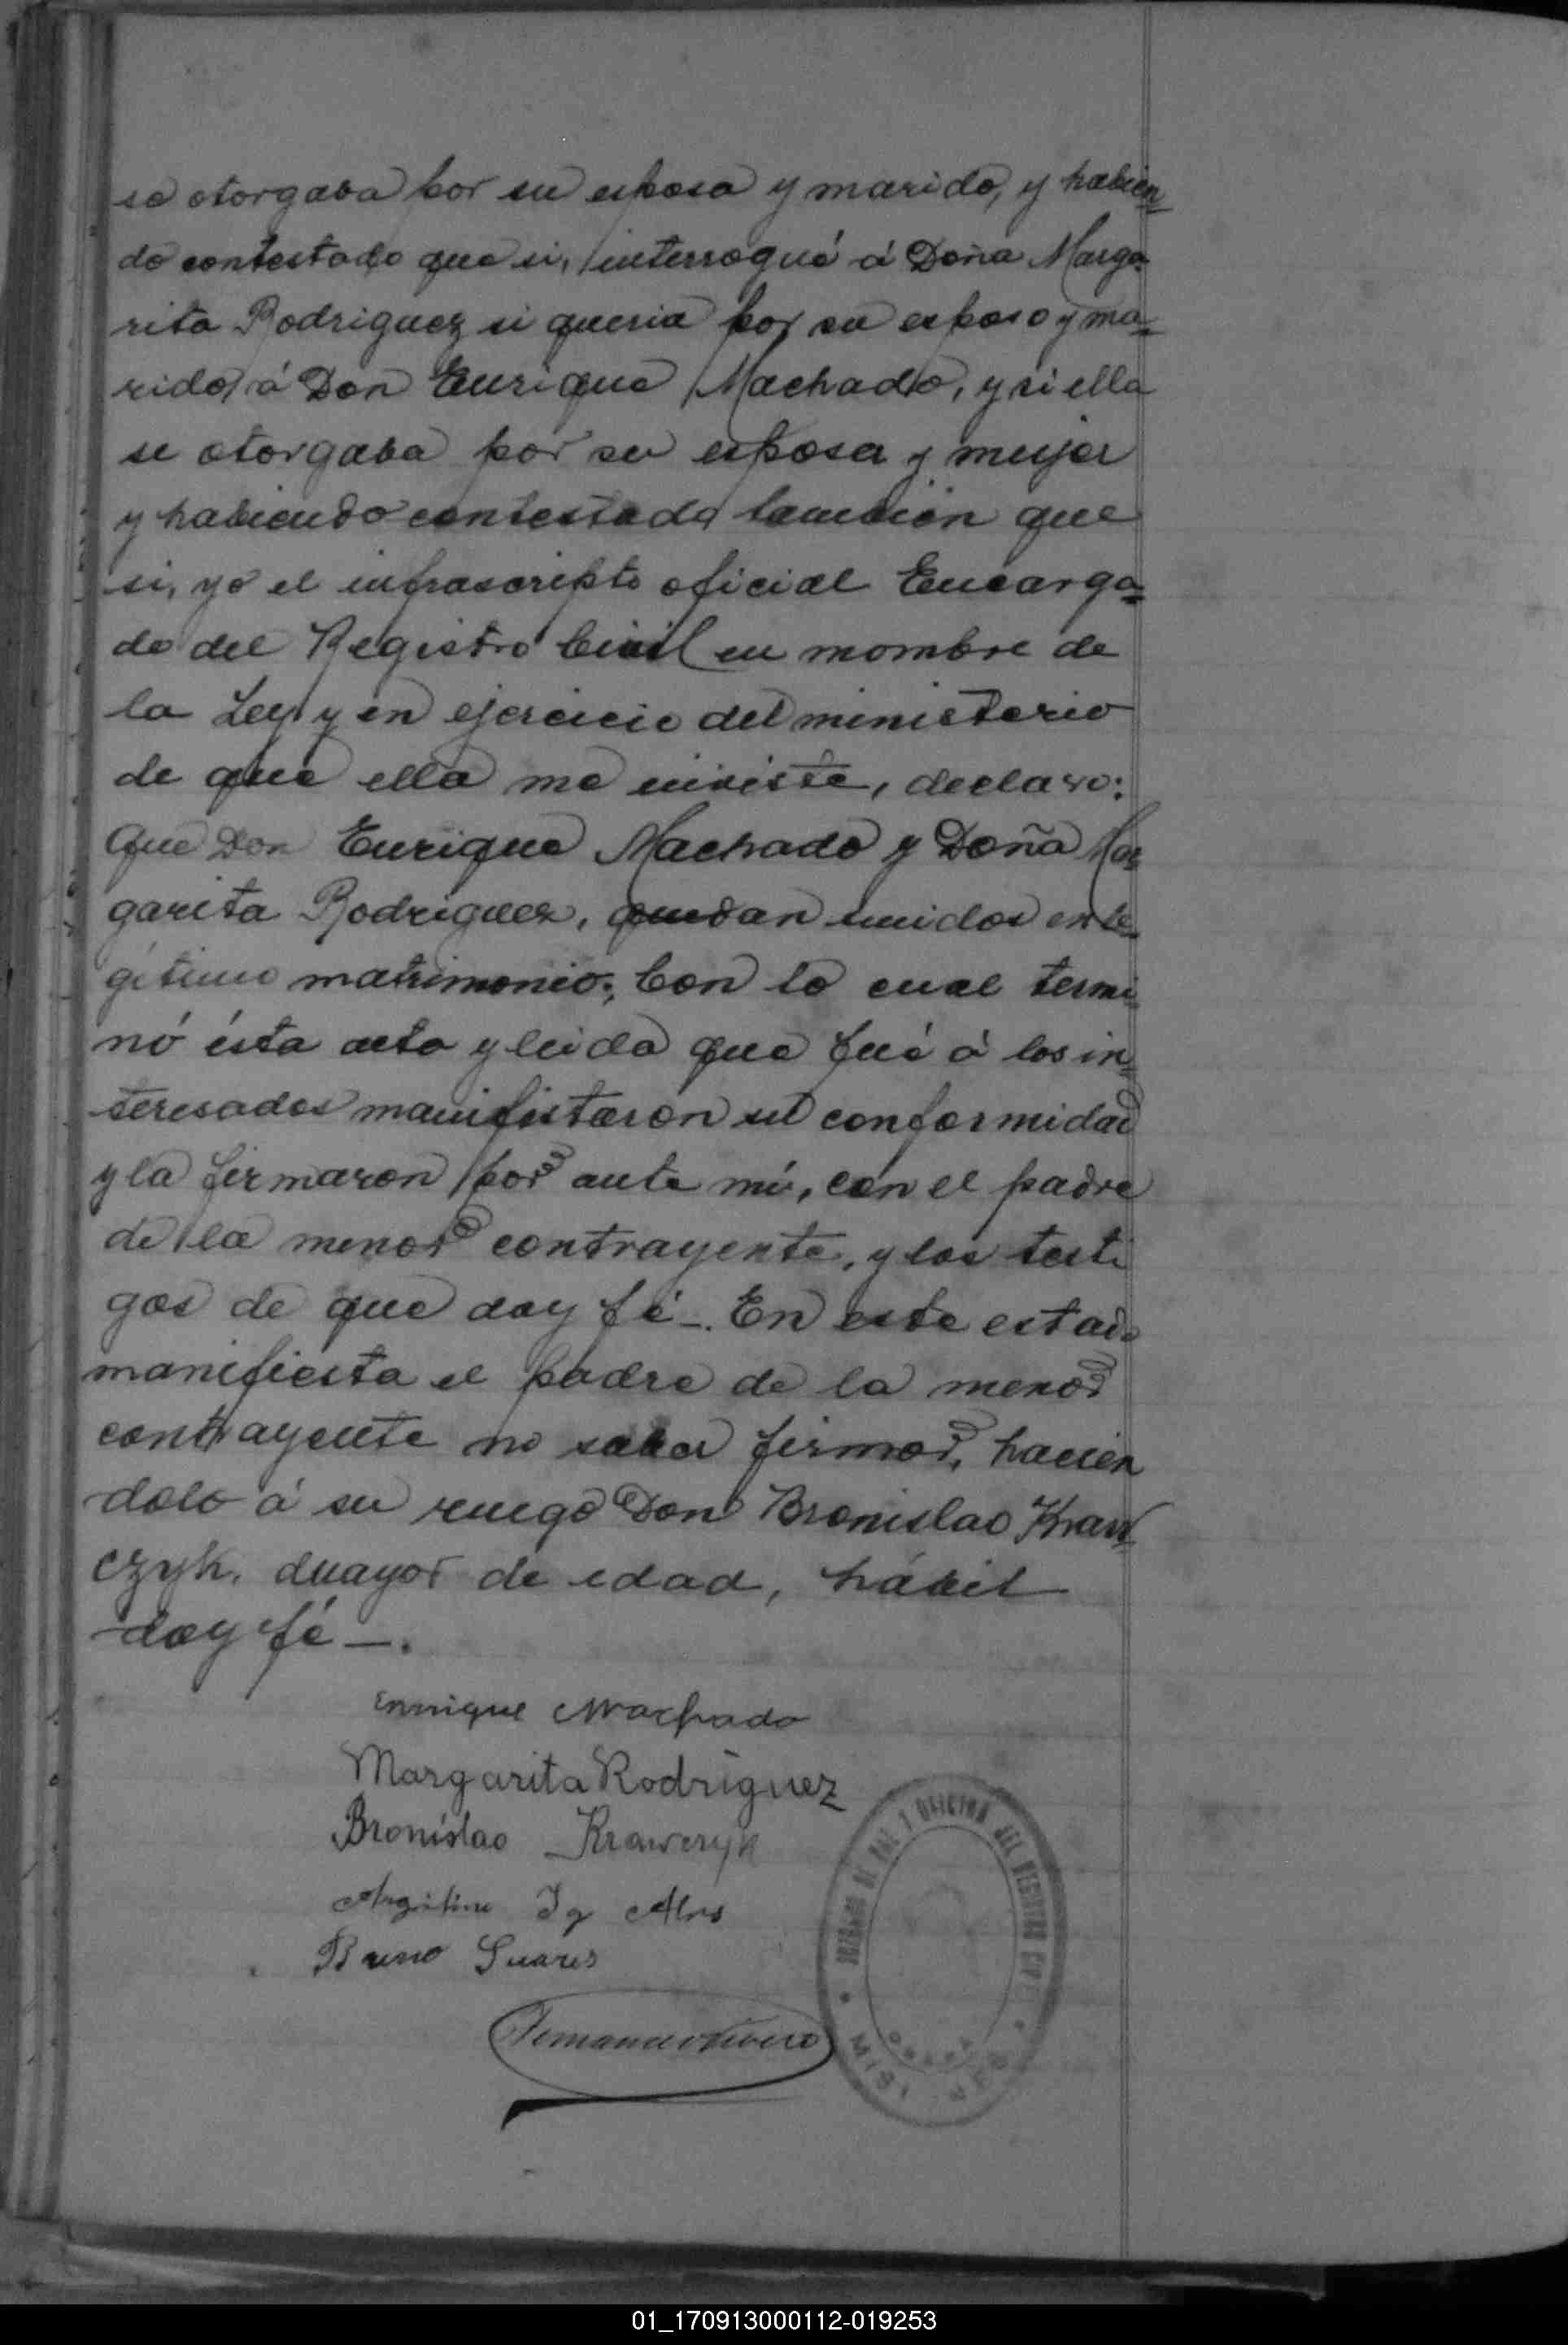 se otorgaba por su esposo y marido, y habien-
do contestado que si, interrogué á Doña Marga-
rita Rodriguez si queria por su esposo y ma-
rido á Don Enrique Machado, y si ella
se otorgaba por su esposa y mujer
y habiendo contestado tambien que
si, yo el infrascripto oficial Encarga-
do del Registro Civil en nombre de
la Ley y en ejercicio del ministerio
de que ella me inviste, declaro:
Que Don Enrique Machado y Doña Mar-
garita Rodriguez, quedan unidos en le-
gitimo matrimonio; Con lo cual termi-
nó ésta acta y leida que fué á los in-
teresados manifestaron su conformidad
y la firmaron por ante mi, con el padre
de la menor contrayente, y los testi
gos de que doy fé-. En este estado
manifiesta el padre de la menor
contrayente no saber firmar, hacien
dolo á su ruego Don Bronislao Kraw-
czyk, mayor de edad, hábil
doy fé —.
Enrrique Machado
Margarita Rodriguez
Bronislao Krawczyk
Bruno Suares
JUZGADO DE PAZ Y OFICINA DEL REGISTRO CIVIL
MISIONES
01_170913000112-019253